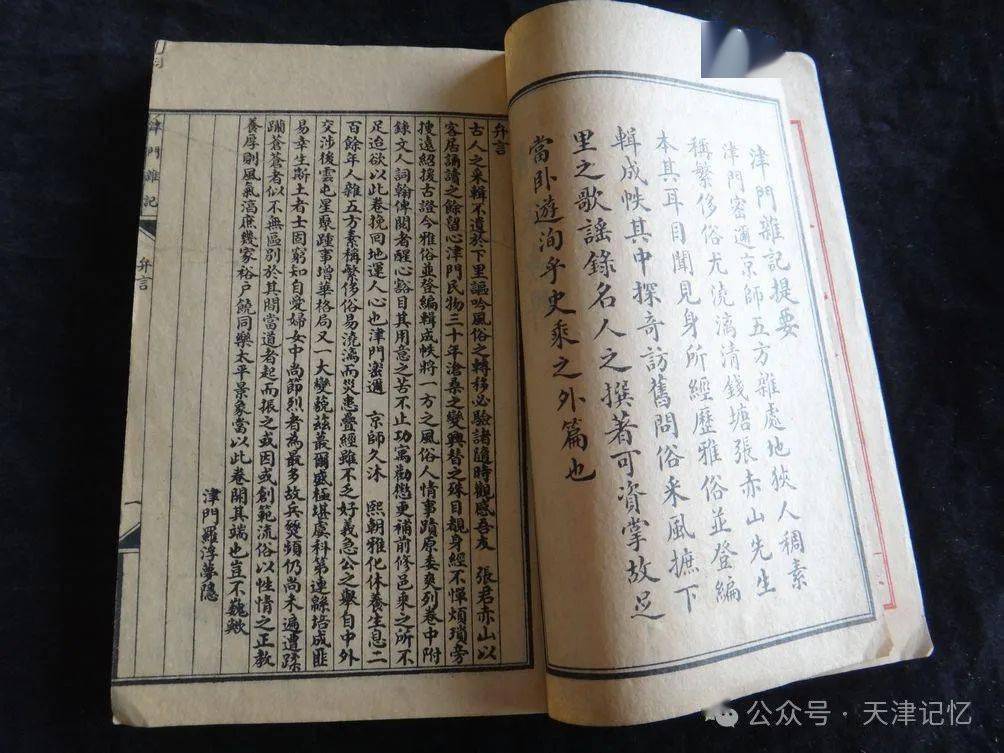 津門雜記提要
津門密邇京師五方雜處地狹人稠素
稱繁侈俗尤澆漓清錢塘張赤山先生
本其耳目聞見身所經歷雅俗並登編
輯成帙其中探奇訪舊問俗采風摭下
里之歌謠錄名人之撰著可資掌故足
當卧遊洵乎史乘之外篇也
弁言
古人之采輯不遺於下里謳吟風俗之轉移必驗諸隨時觀感吾友 張君赤山以
客居誦讀之餘留心津門民物三十年滄桑之變興替之殊目覩身經不憚煩瑣旁
搜遠紹援古證今雅俗並登編輯成帙將一方之風俗人情事蹟原委爽列卷中附
錄文人詞翰俾閱者醒心豁目其用意之苦不止功寓勸懲更補前修邑乘之所不
足迨欲以此卷挽回地運人心也津門密邇 京師久沐 熙朝雅化休養生息二
百餘年人雜五方素稱繁侈俗易澆漓而災患疊經雖不乏好義急公之舉自中外
交涉後雲屯星聚踵事增華格局又一大變藐茲蕞爾盛極堪虞科第連緜培成匪
易幸生斯土者士固窮知自愛婦女中尚節烈者為最多故兵燹頻仍尚未遍遭蹂
躪蒼蒼者似不無區別於其間當道者起而振之或因或創範流俗以性情之正教
養厚則風氣漓庶幾家裕戶饒同樂太平景象當以此卷開其端也豈不巍歟
津門羅浮夢隱
津門雜記
弁言
一
公众号·天津记忆